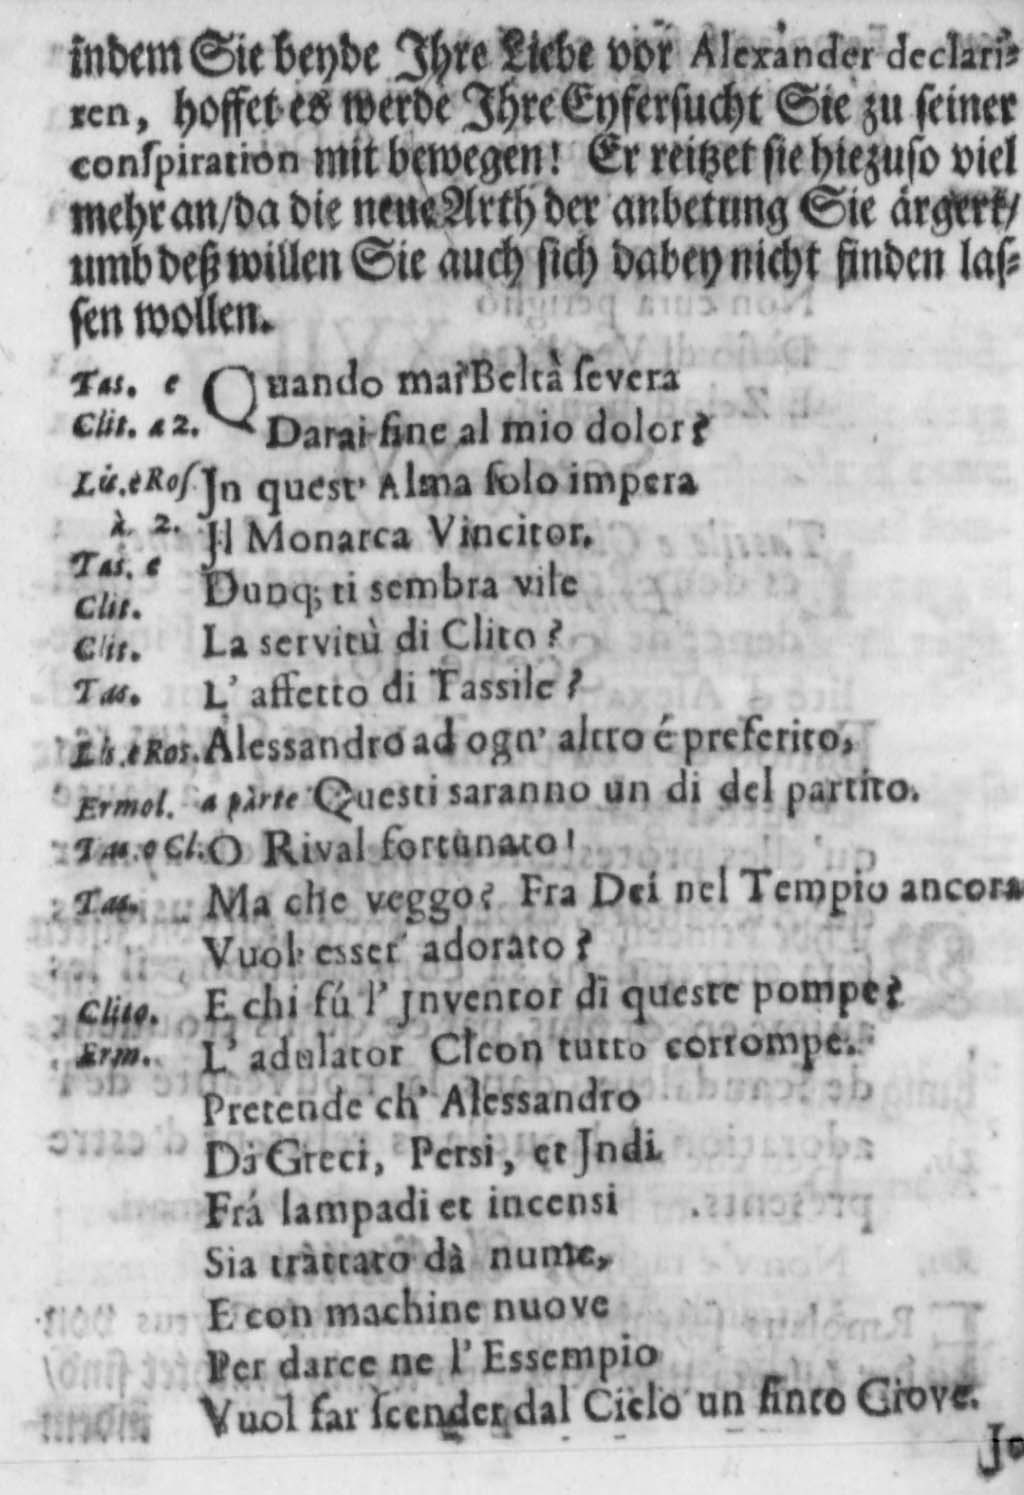 indem Sie beyde Ihre Liebe vor Alexander declari-
ren, hoffet es werde Ihre Eyfersucht Sie zu seiner
conspiration mit bewegen! Er reitzet sie hiezuso viel
mehr an/da die neue Arth der anbetung Sie ärgert/
umb deß willen Sie auch sich dabey nicht finden las-
sen wollen.
Tas. e Quando mai Beltà severa
Clit. a 2. Darai fine al mio dolor?
Lis. e Ros. Jn quest' Alma solo impera
à 2. Jl Monarca Vincitor.
Tas. e Clit. Dunq; ti sembra vile
Clit. La servitù di Clito?
Tas. L' affetto di Tassile?
Lis. e Ros. Alessandro ad ogn' altro é preferito,
Ermol. a pàrte Questi saranno un di del partito.
Tas. e Cl. O Rival fortunato!
Tas. Ma che veggo? Fra Dei nel Tempio ancora
Vuol esser adorato?
Clito. E chi fú l' Jnventor di queste pompe?
Erm. L' adulator Cleon tutto corrompe.
Pretende ch' Alessandro
Da Greci, Persi, et Jndi
Frá lampadi et incensi
Sia trattato dà nume,
E con machine nuove
Per darce ne l' Essempio
Vuol far scender dal Cielo un finto Giove.
Jo